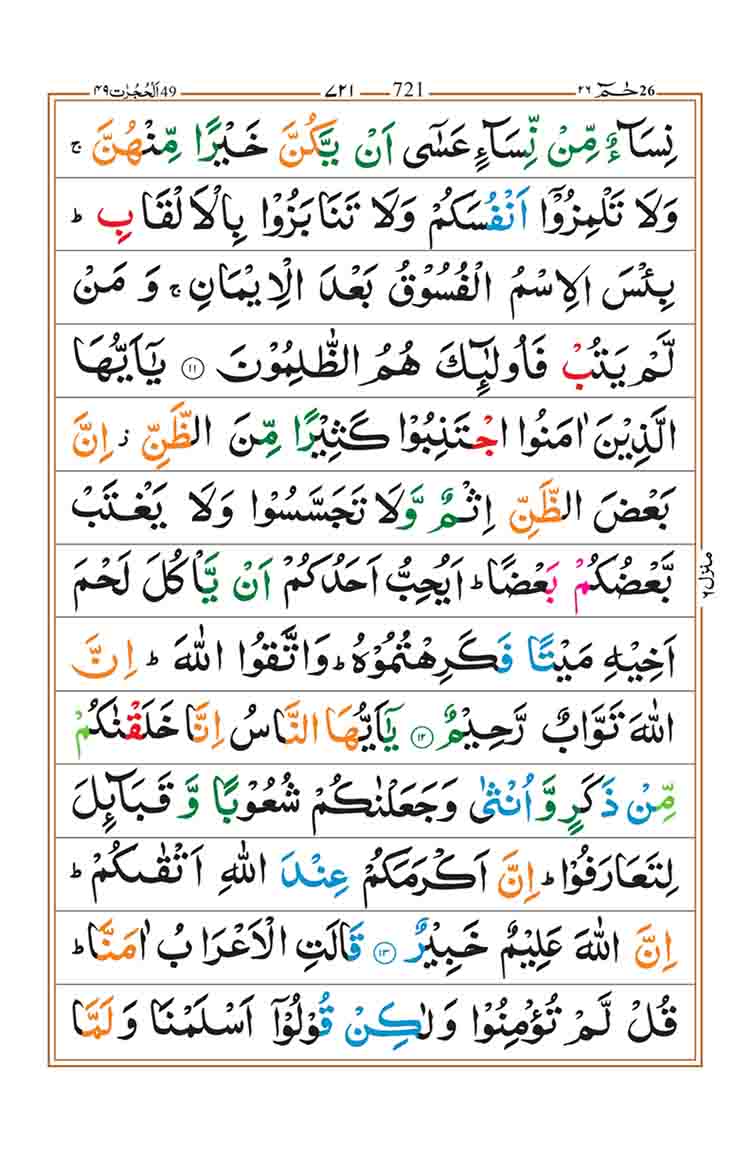 حٰمٓ 26 ٢٦ 721 ٧٢١ اَلْحُجُرٰت 49 ۴۹
نِسَآءٌ مِّنْ نِّسَآءٍ عَسٰٓى اَنْ يَّكُنَّ خَيْرًا مِّنْهُنَّ ۚ
وَلَا تَلْمِزُوْٓا اَنْفُسَكُمْ وَلَا تَنَابَزُوْا بِالْاَلْقَابِ ؕ
بِئْسَ الِاسْمُ الْفُسُوْقُ بَعْدَ الْاِيْمَانِ ۚ وَ مَنْ
لَّمْ يَتُبْ فَاُولٰٓئِكَ هُمُ الظّٰلِمُوْنَ ۝١١ يٰٓاَيُّهَا
الَّذِيْنَ اٰمَنُوا اجْتَنِبُوْا كَثِيْرًا مِّنَ الظَّنِّ ز اِنَّ
بَعْضَ الظَّنِّ اِثْمٌ وَّلَا تَجَسَّسُوْا وَلَا يَغْتَبْ
بَّعْضُكُمْ بَعْضًا ؕ اَيُحِبُّ اَحَدُكُمْ اَنْ يَّاْكُلَ لَحْمَ
منزل ٦
اَخِيْهِ مَيْتًا فَكَرِهْتُمُوْهُ ؕ وَاتَّقُوا اللّٰهَ ؕ اِنَّ
اللّٰهَ تَوَّابٌ رَّحِيْمٌ ۝١٢ يٰٓاَيُّهَا النَّاسُ اِنَّا خَلَقْنٰكُمْ
مِّنْ ذَكَرٍ وَّاُنْثٰى وَجَعَلْنٰكُمْ شُعُوْبًا وَّ قَبَآئِلَ
لِتَعَارَفُوْا ؕ اِنَّ اَكْرَمَكُمْ عِنْدَ اللّٰهِ اَتْقٰىكُمْ ؕ
اِنَّ اللّٰهَ عَلِيْمٌ خَبِيْرٌ ۝١٣ قَالَتِ الْاَعْرَابُ اٰمَنَّا ؕ
قُلْ لَّمْ تُؤْمِنُوْا وَلٰكِنْ قُوْلُوْٓا اَسْلَمْنَا وَلَمَّا